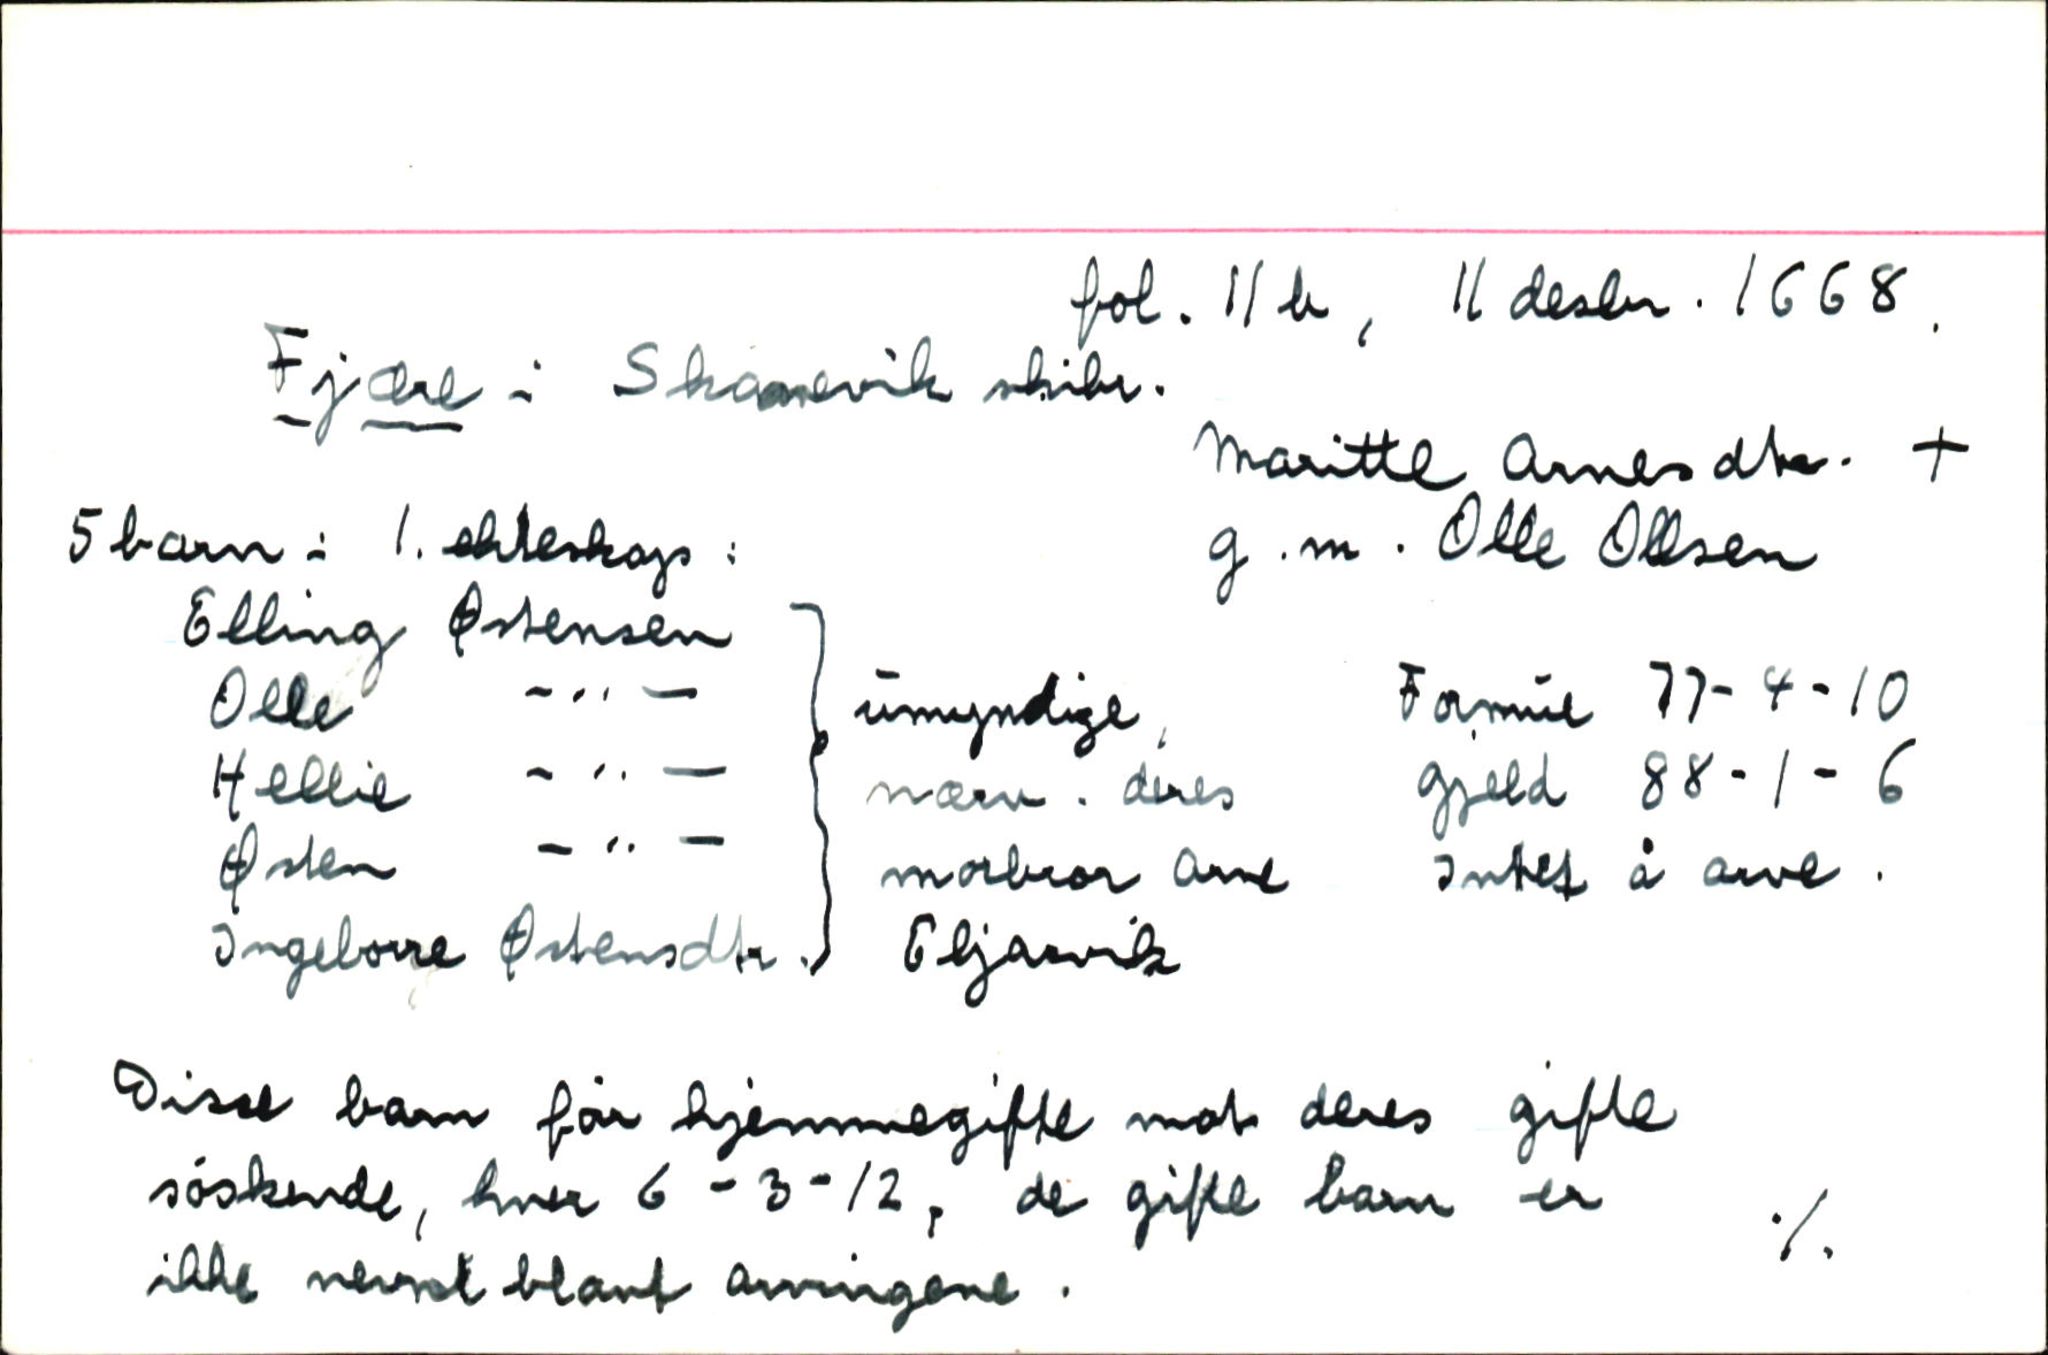 fol. 11 b, 11 desbr. 1668.
Fjære i Skaanevik skibr.
Maritte Arnesdtr. +
g.m. Olle Ollsen
5 barn i 1. ekteskap:
Elling Østensen
Olle -"-
Hellie -"-
Østen -"-
Ingeborre Østensdtr.
umyndige,
nærv. deres
morbror Arne
Eljarvik
Formue 77-4-10
Gjeld 88-1-6
Intet å arve.
Disse barn får hjemmegifte mot deres gifte
søskende, hver 6-3-12, de gifte barn er
ikke nevnt blant arvingene.
./.